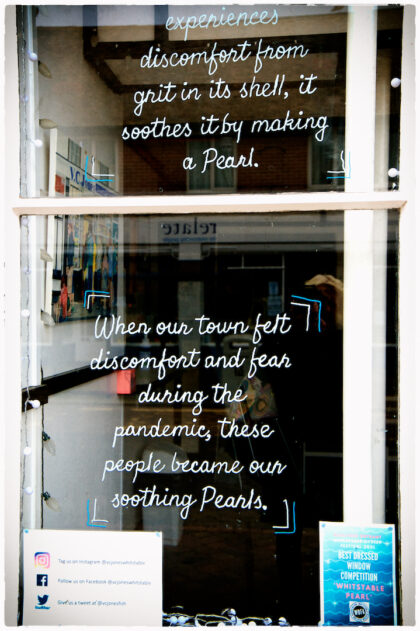 experiences
discomfort from
grit in its shell, it
soothes it by making
a Pearl.
relate
When our town felt
discomfort and fear
during the
pandemic, these
people became our
soothing Pearls.
Tag us on Instagram @vcjoneswhitstable
Follow us on Facebook @vcjoneswhitstable
Give us a tweet at @vcjonesfish
BEST DRESSED
WINDOW
COMPETITION
WHITSTABLE
PEARL